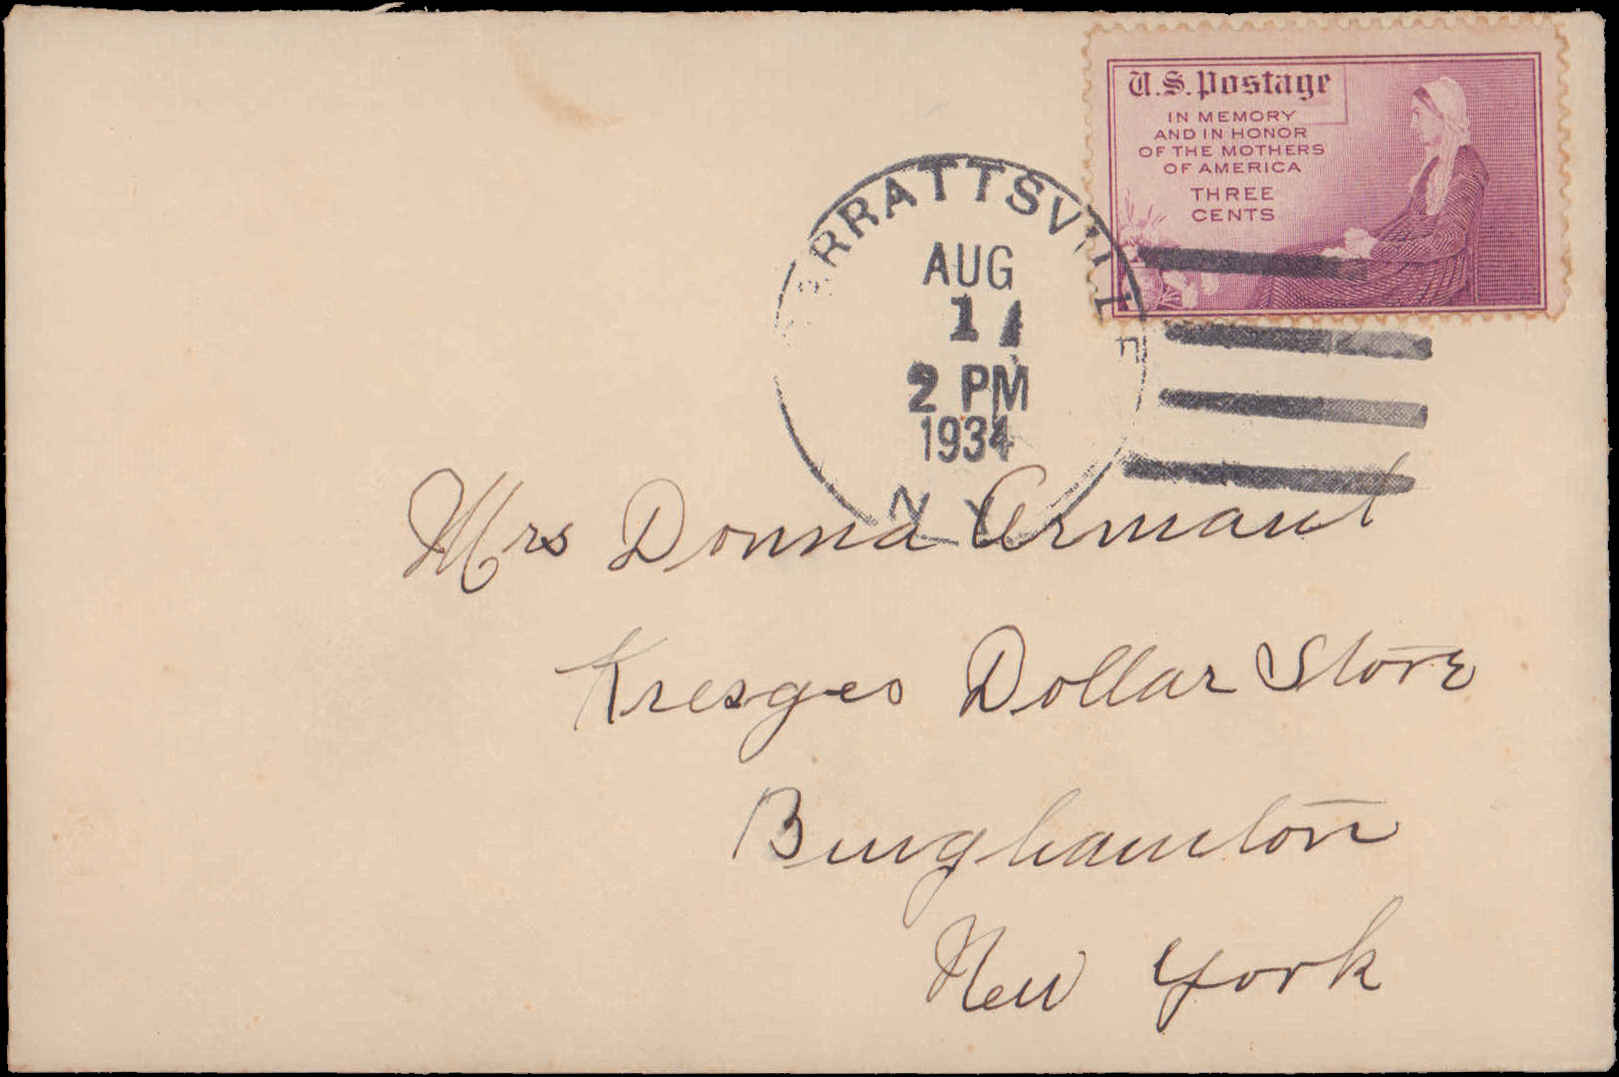 U.S. Postage
IN MEMORY
AND IN HONOR
OF THE MOTHERS
OF AMERICA
THREE
CENTS
RRATTSVILLE
AUG
2 PM
1934
N.Y.
Mrs Donna Armant
Kresges Dollar Store
Binghamton
New York